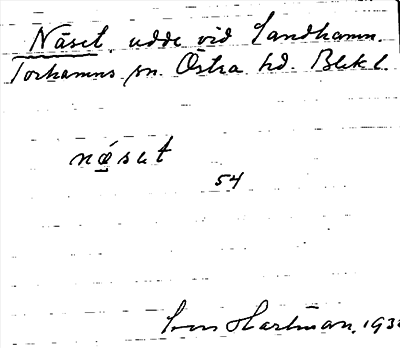 Näset, udde vid Sandhamn.
Torhamns sn. Östra hd. Blek l.
næsət
54
Sven Hartman, 193